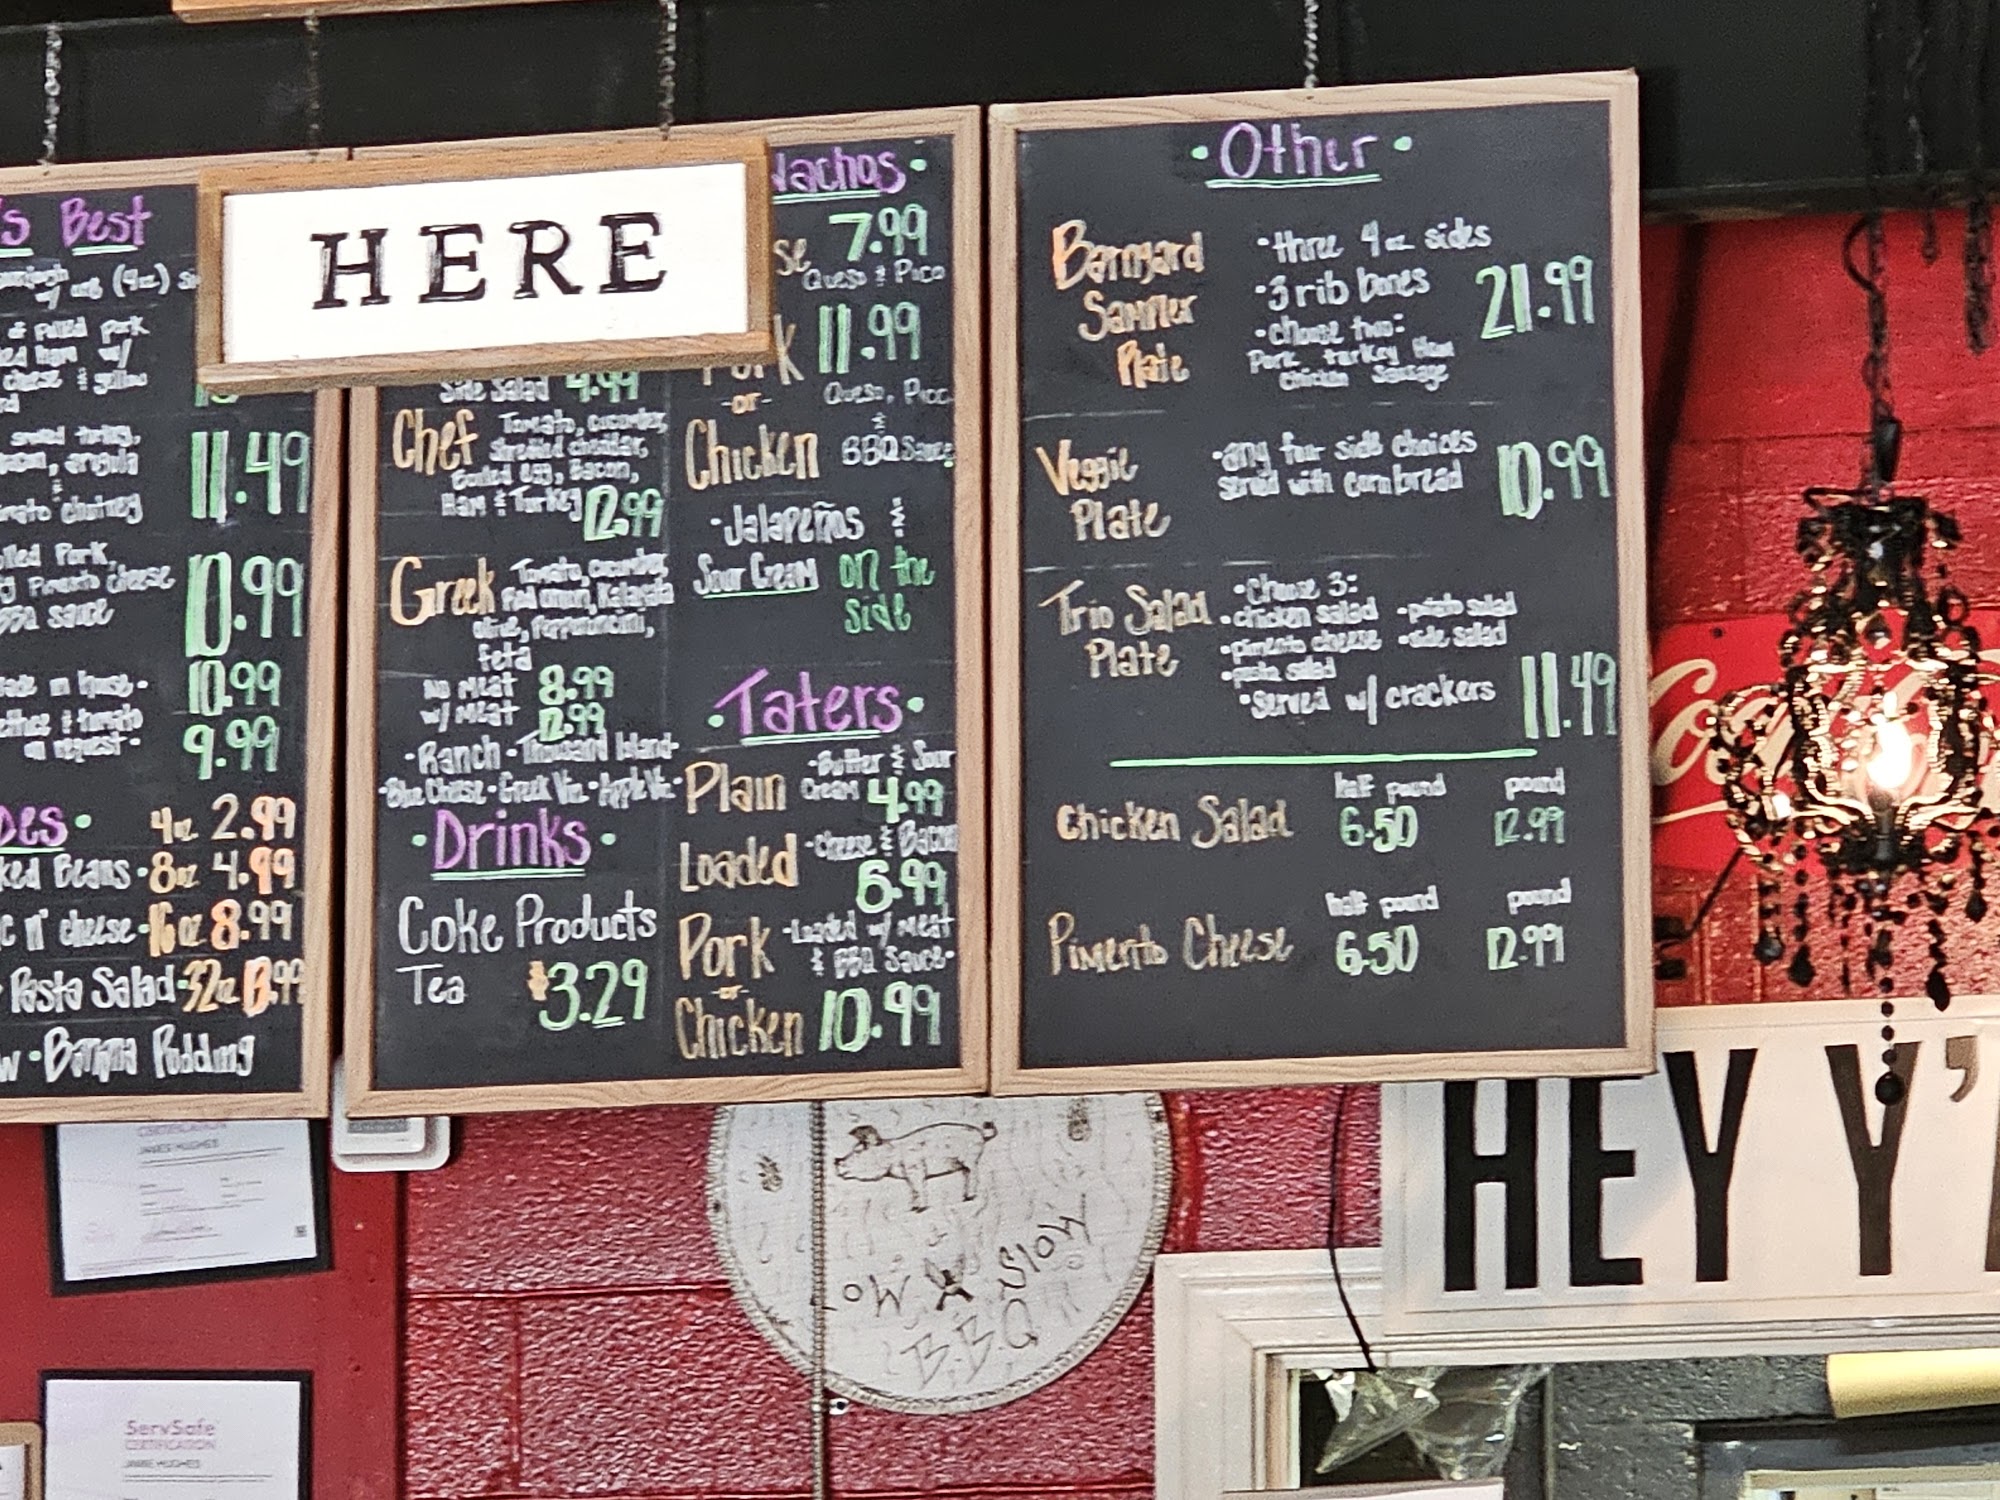 's Best
w/ one (4oz)
of Pulled Pork
Ham w/
cheese & yellow
11.49
arugula
tomato chutney
Pork,
Pimento Cheese
BBQ sauce
10.99
made in house-
10.99
lettuce & tomato
on request-
9.99
des •
4oz 2.99
ked Beans • 8oz 4.99
c n' cheese • 16oz 8.99
Pasta Salad - 32oz 13.99
w • Banana Pudding
HERE
Side Salad 4.99
Chef Tomato, cucumber,
shredded cheddar,
Boiled egg, Bacon,
Ham & Turkey 12.99
Greek Tomato, cucumber,
Red onion, Kalamata
olive, Pepperoncini,
feta
No Meat 8.99
w/ Meat 12.99
• Ranch • Thousand Island-
• Blue Cheese • Greek Vin • Apple Vin •
• Drinks •
Coke Products
Tea $3.29
Nachos •
se 7.99
Queso & Pico
Pork 11.99
-or- Queso, Pico
&
Chicken BBQ Sauce
• Jalapeños &
Sour Cream on the
side
• Taters •
Plain • Butter & Sour
Cream 4.99
Loaded • Cheese & Bacon
6.99
Pork • Loaded w/ Meat
-or- & BBQ Sauce•
Chicken 10.99
• Other •
Barnyard Sampler Plate
• three 4oz sides
• 3 rib bones
• choose two:
Pork turkey Ham
chicken sausage
21.99
Veggie Plate
• any four side choices
served with cornbread
10.99
Trio Salad Plate
• Choose 3:
• chicken salad • potato salad
• pimento cheese • side salad
• pasta salad
• served w/ crackers
11.49
half pound pound
Chicken Salad 6.50 12.99
half pound pound
Pimento Cheese 6.50 12.99
HEY Y'
LOW N SLOW
B.B.Q
CERTIFICATION
JAMES HUGHES
ServSafe
CERTIFICATION
JAMIE HUGHES